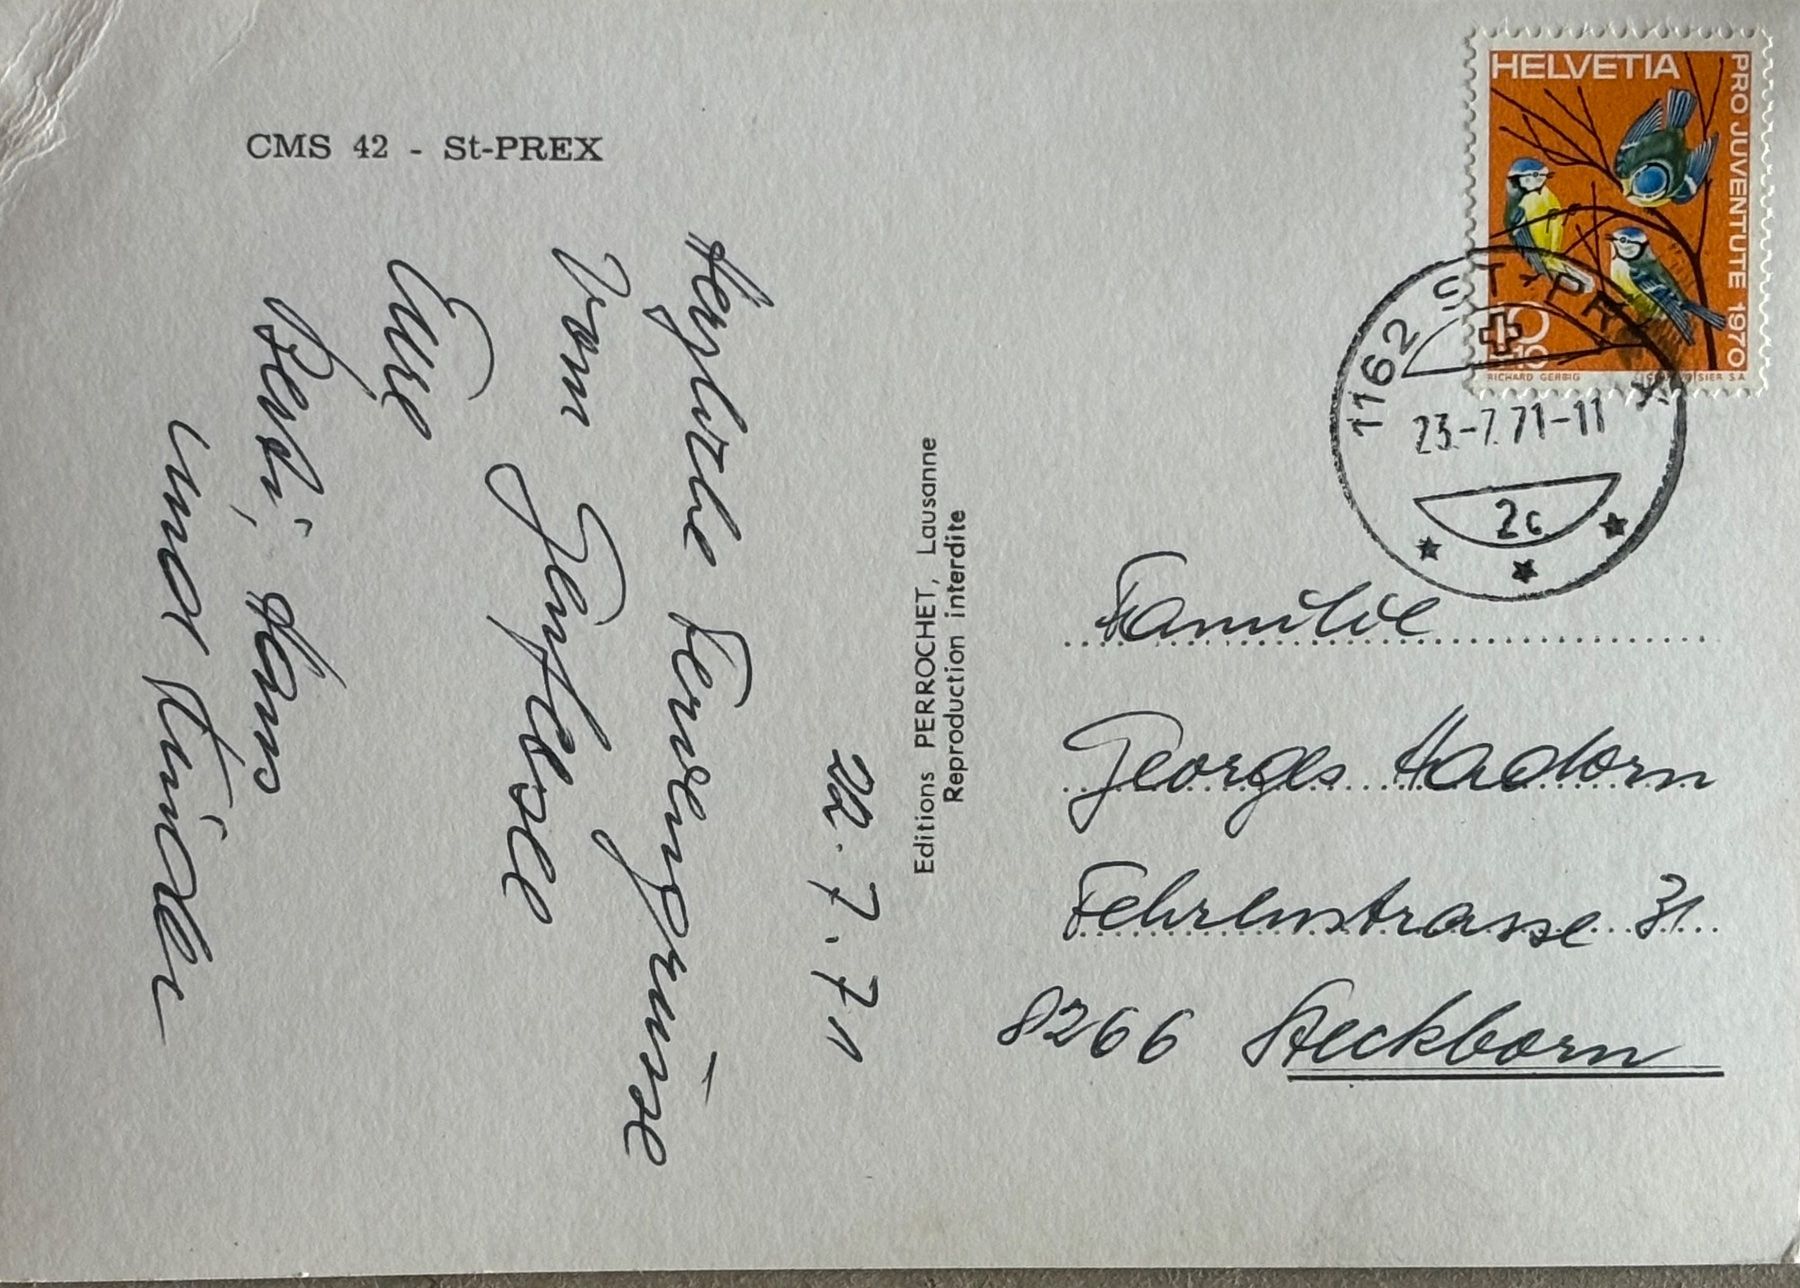 CMS 42 - St-PREX
22.7.71
Herzliche Feriengrüsse
vom Genfersee
Eure
Berti, Hans
und Kinder
Editions PERROCHET, Lausanne
Reproduction interdite
HELVETIA
PRO JUVENTUTE 1970
10
+10
RICHARD GERBIG
COURVOISIER S.A.
1162 ST-PREX
23.-7.71-11
2c
Familie
Georges Hadorn
Fehrenstrasse 31
8266 Steckborn